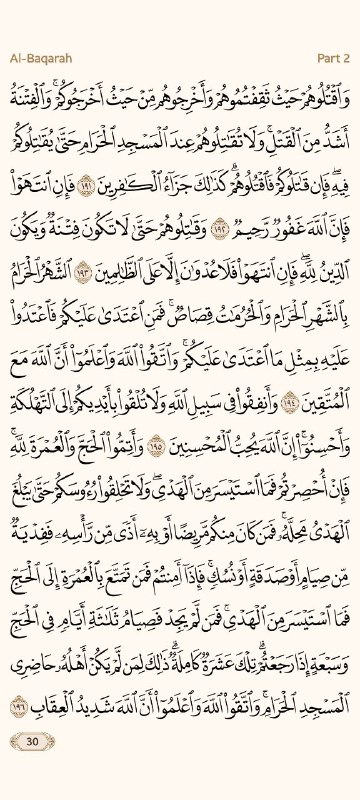 Al-Baqarah
Part 2
وَٱقْتُلُوهُمْ حَيْثُ ثَقِفْتُمُوهُمْ وَأَخْرِجُوهُم مِّنْ حَيْثُ أَخْرَجُوكُمْ ۚ وَٱلْفِتْنَةُ
أَشَدُّ مِنَ ٱلْقَتْلِ ۚ وَلَا تُقَٰتِلُوهُمْ عِندَ ٱلْمَسْجِدِ ٱلْحَرَامِ حَتَّىٰ يُقَٰتِلُوكُمْ
فِيهِ ۖ فَإِن قَٰتَلُوكُمْ فَٱقْتُلُوهُمْ ۗ كَذَٰلِكَ جَزَآءُ ٱلْكَٰفِرِينَ ١٩١ فَإِنِ ٱنتَهَوْا۟
فَإِنَّ ٱللَّهَ غَفُورٌ رَّحِيمٌ ١٩٢ وَقَٰتِلُوهُمْ حَتَّىٰ لَا تَكُونَ فِتْنَةٌ وَيَكُونَ
ٱلدِّينُ لِلَّهِ ۖ فَإِنِ ٱنتَهَوْا۟ فَلَا عُدْوَٰنَ إِلَّا عَلَى ٱلظَّٰلِمِينَ ١٩٣ ٱلشَّهْرُ ٱلْحَرَامُ
بِٱلشَّهْرِ ٱلْحَرَامِ وَٱلْحُرُمَٰتُ قِصَاصٌ ۚ فَمَنِ ٱعْتَدَىٰ عَلَيْكُمْ فَٱعْتَدُوا۟
عَلَيْهِ بِمِثْلِ مَا ٱعْتَدَىٰ عَلَيْكُمْ ۚ وَٱتَّقُوا۟ ٱللَّهَ وَٱعْلَمُوٓا۟ أَنَّ ٱللَّهَ مَعَ
ٱلْمُتَّقِينَ ١٩٤ وَأَنفِقُوا۟ فِى سَبِيلِ ٱللَّهِ وَلَا تُلْقُوا۟ بِأَيْدِيكُمْ إِلَى ٱلتَّهْلُكَةِ ۛ
وَأَحْسِنُوٓا۟ ۛ إِنَّ ٱللَّهَ يُحِبُّ ٱلْمُحْسِنِينَ ١٩٥ وَأَتِمُّوا۟ ٱلْحَجَّ وَٱلْعُمْرَةَ لِلَّهِ ۚ
فَإِنْ أُحْصِرْتُمْ فَمَا ٱسْتَيْسَرَ مِنَ ٱلْهَدْىِ ۖ وَلَا تَحْلِقُوا۟ رُءُوسَكُمْ حَتَّىٰ يَبْلُغَ
ٱلْهَدْىُ مَحِلَّهُۥ ۚ فَمَن كَانَ مِنكُم مَّرِيضًا أَوْ بِهِۦٓ أَذًى مِّن رَّأْسِهِۦ فَفِدْيَةٌ
مِّن صِيَامٍ أَوْ صَدَقَةٍ أَوْ نُسُكٍ ۚ فَإِذَآ أَمِنتُمْ فَمَن تَمَتَّعَ بِٱلْعُمْرَةِ إِلَى ٱلْحَجِّ
فَمَا ٱسْتَيْسَرَ مِنَ ٱلْهَدْىِ ۚ فَمَن لَّمْ يَجِدْ فَصِيَامُ ثَلَٰثَةِ أَيَّامٍ فِى ٱلْحَجِّ
وَسَبْعَةٍ إِذَا رَجَعْتُمْ ۗ تِلْكَ عَشَرَةٌ كَامِلَةٌ ۗ ذَٰلِكَ لِمَن لَّمْ يَكُنْ أَهْلُهُۥ حَاضِرِى
ٱلْمَسْجِدِ ٱلْحَرَامِ ۚ وَٱتَّقُوا۟ ٱللَّهَ وَٱعْلَمُوٓا۟ أَنَّ ٱللَّهَ شَدِيدُ ٱلْعِقَابِ ١٩٦
30